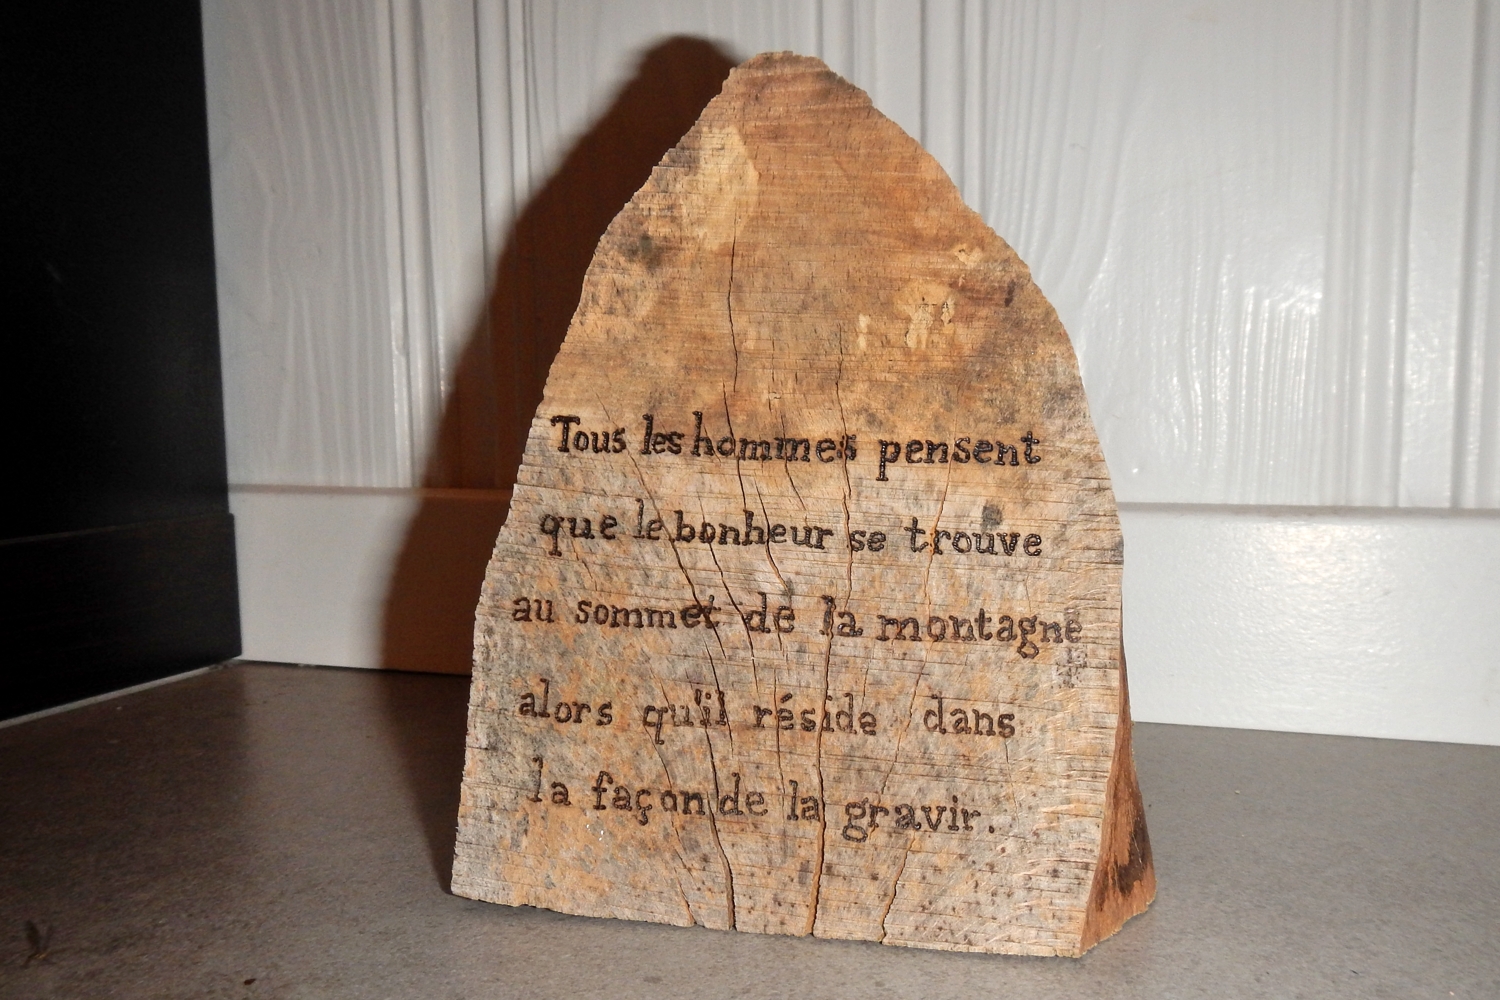 Tous les hommes pensent
que le bonheur se trouve
au sommet de la montagne
alors qu'il réside dans
la façon de la gravir.